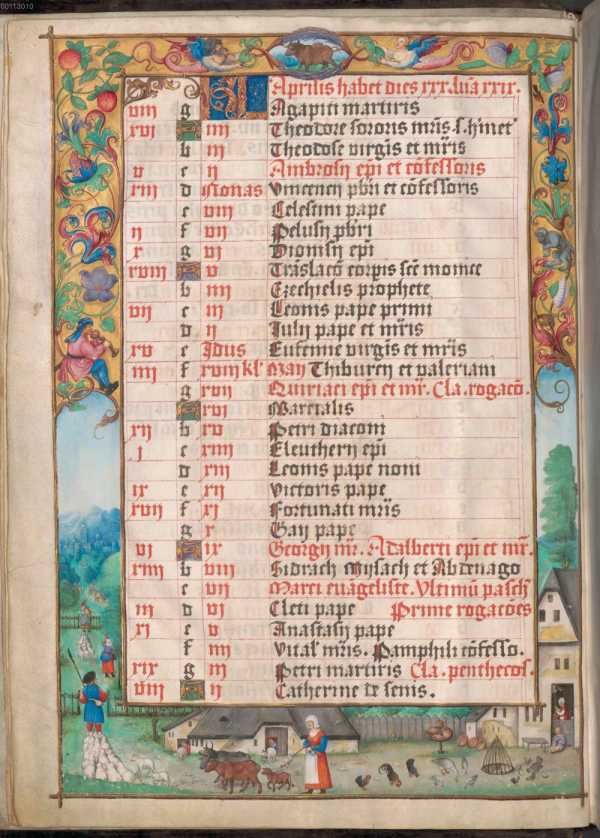 00113010
Aprilis habet dies xxx. lūa xxix.
viij g Agapiti martiris
xvj A iiij Theodore sororis mr̄is. s. h'met
b iij Theodose virgīs et mr̄is
v c ij Ambrosij ep̄i et cōfessoris
xiij d Nonas Vincencij pbr̄i et cōfessoris
e viij Celestini pape
ij f vij Pelusij pbr̄i
x g vj Dionisij ep̄i
xviij A v Trāslacō corpis scē monice
b iiij Ezechielis prophete
vij c iij Leonis pape primi
d ij Iulij pape et mr̄is
xv e Idus Eufemie virgīs et mr̄is
iiij f xviij kl' Maij Thiburcij et valeriani
g xvij Quiriaci ep̄i et mr̄. Cla. rogacō.
A xvj Marcialis
xij b xv Petri diaconi
j c xiiij Eleutherij ep̄i
d xiij Leonis pape noni
ix e xij Victoris pape
xvij f xj Fortunati mr̄is
g x Gaij pape
vj A ix Georgij mr̄. Adalberti ep̄i et mr̄.
xiiij b viij Sidrach Mysach et Abdenago
c vij Marci euāgeliste. Vltimū pasch
iij d vj Cleti pape Prime rogacōes
xj e v Anastasij pape
f iiij Vital' mr̄is. Pamphili cōfesso.
xix g iij Petri martiris Cla. penthecos.
viij A ij Catherine de senis.